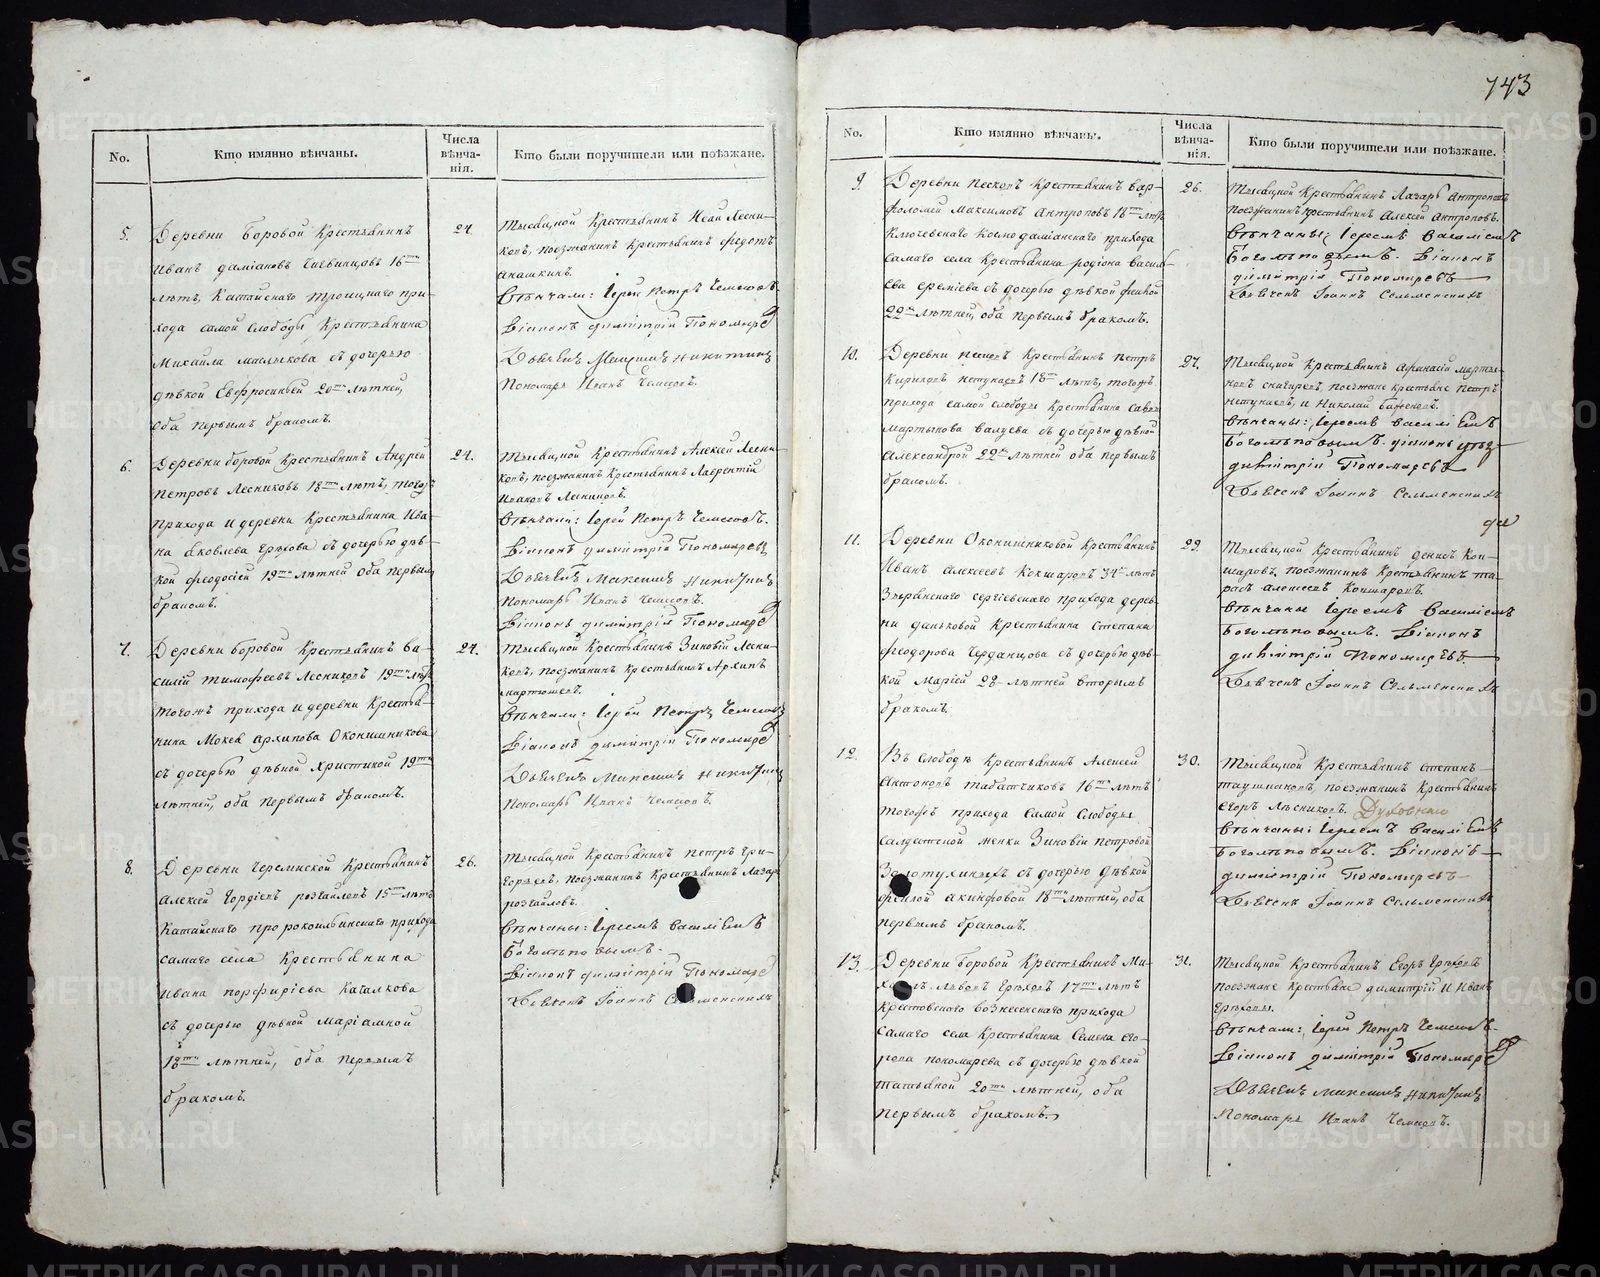 743
No.
Кто имянно вѣнчаны.
Числа вѣнча-нія.
Кто были поручители или поѣзжане.
5.
Деревни Боровой Крестьянинъ
Иванъ Даміановъ 16ти
лѣтъ, Катайскаго Троицкаго при-
хода самой Слободы Крестьянина
Михайла съ дочерью
дѣвкой Евфросиньей 20ти лѣтней,
оба первымъ бракомъ.
24.
Тысяцкой Крестьянинъ Лесни-
ковъ, поезжанинъ Крестьянинъ Федотъ
Анашкинъ.
Вѣнчали: Іерей Петръ
Діаконъ Димитрій Пономаре
Дьячекъ Максимъ Никитинъ
Пономарь Иванъ
6.
Деревни Боровой Крестьянинъ Андрей
Петровъ Лесниковъ 18ти лѣтъ, тогожъ
прихода и деревни Крестьянина Ива-
на Яковлева Грѣхова съ дочерью дѣв-
кой Феодосіей 19ти лѣтней оба первымъ
бракомъ.
24.
Тысяцкой Крестьянинъ Алексей Лесни-
ковъ, поезжанинъ Крестьянинъ Лаврентій
Ивановъ Лесниковъ.
Вѣнчали: Іерей Петръ
Діаконъ Димитрій Пономаревъ
Дьячекъ Максимъ Никитинъ
Пономарь Иванъ
Діаконъ Димитрій Пономаре
7.
Деревни Боровой Крестьянинъ Ва-
силій Тимофеевъ Лесниковъ 19ти лѣтъ
тогожъ прихода и деревни Крестья-
нина Мокея Архипова Оконишникова
съ дочерью дѣвкой Христиной 19ти
лѣтней, оба первымъ бракомъ.
24.
Тысяцкой Крестьянинъ Зиновій Лесни-
ковъ, поезжанинъ Крестьянинъ Архипъ
Мартюшевъ.
Вѣнчали: Іерей Петръ
Діаконъ Димитрій Пономаре
Дьячекъ Максимъ Никитинъ
Пономарь Иванъ
8.
Деревни Черемиской Крестьянинъ
Алексей Гордіевъ 15ти лѣтъ
Катайскаго пророкоильинскаго прихода
самаго села Крестьянина
Ивана Порфирьева Качалкова
съ дочерью дѣвкой Маріамной
18ти лѣтней, оба первымъ
бракомъ.
26.
Тысяцкой Крестьянинъ Петръ Гри-
горьевъ, поезжанинъ Крестьянинъ Лазарь
Вѣнчаны: Іереемъ Василіемъ
Боголѣповымъ.
Діаконъ Димитрій Пономаре
Дьячекъ Іоаннъ Сельменскихъ
No.
Кто имянно вѣнчаны.
Числа вѣнча-нія.
Кто были поручители или поѣзжане.
9.
Деревни Песковъ Крестьянинъ Вар-
фоломей Максимовъ Антроповъ 18ти лѣтъ
Ключевскаго Космодаміанскаго прихода
самаго села Крестьянина Родіона Василь-
ева Еремѣева съ дочерью дѣвкой
22ти лѣтней, оба первымъ бракомъ.
26.
Тысяцкой Крестьянинъ Лазарь Антроповъ
поезжанинъ Крестьянинъ Алексей Антроповъ.
Вѣнчаны: Іереемъ Василіемъ
Боголѣповымъ. Діаконъ
Димитрій Пономаревъ
Дьячекъ Іоаннъ Сельменскихъ
10.
Деревни Песковъ Крестьянинъ Петръ
Кириловъ 18ти лѣтъ, тогожъ
прихода самой слободы Крестьянина Савы
Мартынова Валуева съ дочерью дѣвкой
Александрой 22ти лѣтней оба первымъ
бракомъ.
27.
Тысяцкой Крестьянинъ Афанасій Марты-
новъ Снигиревъ, поезжане крестьяне Петръ
и Николай Баженовъ.
Вѣнчаны: Іереемъ Василіемъ
Боголѣповымъ. Діаконъ
Димитрій Пономаревъ
Дьячекъ Іоаннъ Сельменскихъ
11.
Деревни Оконишниковой Крестьянинъ
Иванъ Алексеевъ Кокшаровъ 34 лѣтъ
Зырянскаго Сергіевскаго прихода дерев-
ни Даньковой Крестьянина Степана
Феодорова Черданцова съ дочерью дѣв-
кой Маріей 28 лѣтней вторымъ
бракомъ.
29.
Тысяцкой Крестьянинъ Денисъ Кок-
шаровъ, поезжанинъ Крестьянинъ Та-
расъ Алексеевъ Кокшаровъ.
Вѣнчаны Іереемъ Василіемъ
Боголѣповымъ. Діаконъ
Димитрій Пономаревъ.
Дьячекъ Іоаннъ Сельменскихъ
12.
Въ Слободѣ Крестьянинъ Алексей
Антоновъ Табатчиковъ 16ти лѣтъ
тогожъ прихода самой Слободы
салдатской женки Зиновіи Петровой
Золотухиныхъ съ дочерью дѣвкой
Феклой Акинфовой 18ти лѣтней, оба
первымъ бракомъ.
30.
Тысяцкой Крестьянинъ Степанъ
Таушкановъ, поезжанинъ Крестьянинъ
Егоръ Лѣсниковъ.
Вѣнчаны: Іереемъ Василіемъ
Боголѣповымъ. Діаконъ
Димитрій Пономаревъ
Дьячекъ Іоаннъ Сельменскихъ
13.
Деревни Боровой Крестьянинъ Ми-
Львовъ Грѣховъ 17ти лѣтъ
Крестовскаго Вознесенскаго прихода
самаго села Крестьянина Семена Его-
рова Пономарева съ дочерью дѣвкой
Татьяной 20ти лѣтней, оба
первымъ бракомъ.
31.
Тысяцкой Крестьянинъ Егоръ Грѣховъ
поезжане крестьяне Димитрій и Иванъ
Грѣховы.
Вѣнчали: Іерей Петръ
Діаконъ Димитрій Пономаре
Дьячекъ Максимъ Никитинъ
Пономарь Иванъ
METRIKI.GASO-URAL.RU